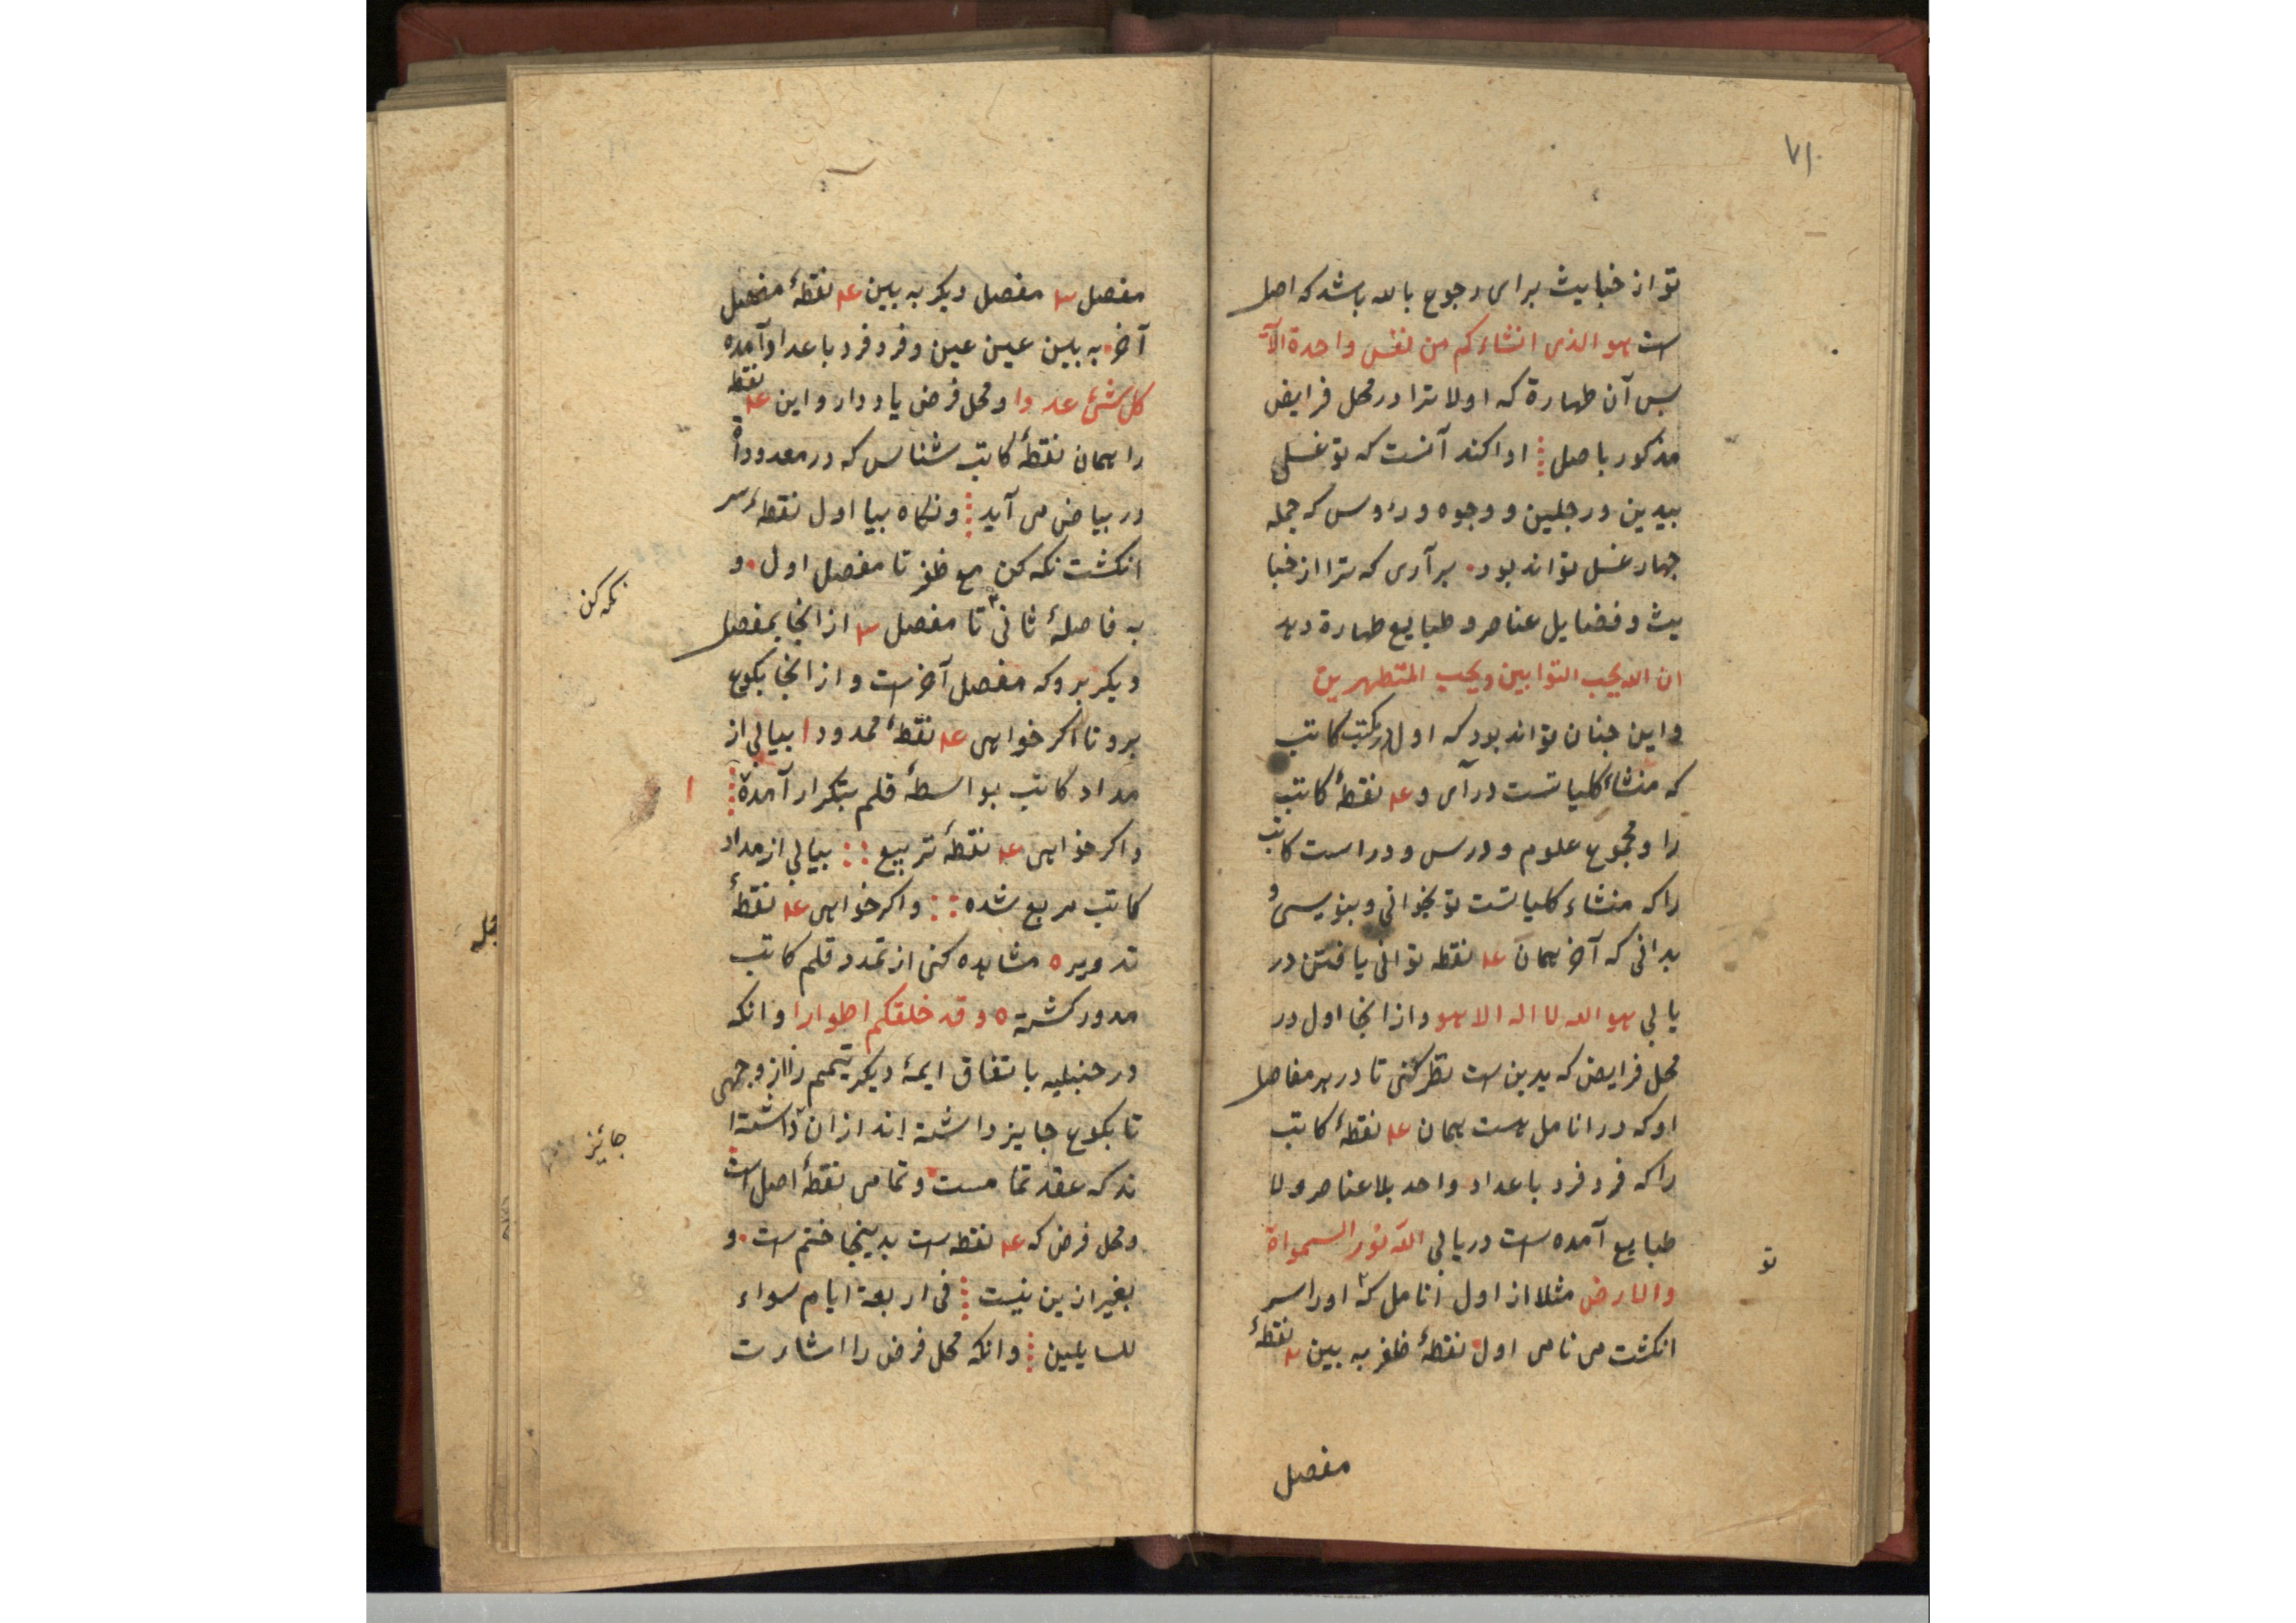 ٧١
تو از خبایث برای رجوع بالله باشد که اصل
است هو الذی انشاءکم من نفس واحدة الآیة
بس آن طهارة که اولا ترا در محل فرایض
مذکور باصل اداکند آنست که تو غسل
بیدین و رجلین و وجوه و رءوس که جمله
جهار غسل تواند بود برآری که ترا از خبا
یث و فضایل عناصر و طبایع طهارة دهد
ان الله یحب التوابین ویحب المتطهرین
و این جنان تواند بود که اول در مکتب کاتب
که منشاء کلیاتست درآی و ۴ نقطهٔ کاتب
را و مجموع علوم و درس و دراست کاتب
را که منشاء کلیاتست تو بخوانی و بنویسی و
بدانی که آخر همان ۴ نقطه توانی یافتن در
یابی هو الله لا اله الا هو و از انجا اول در
محل فرایض که یدین است نظر کنی تا در هر مفاصل
او که در انامل هست همان ۴ نقطهٔ کاتب
را که فرد فرد باعداد واحد بلا عناصر و لا
طبایع آمده است دریابی الله نور السمواة
تو
والارض مثلا از اول انامل که اورا سر
انکشت می نامی اول نقطهٔ ظفر به بین ۲ نقطهٔ
مفصل
مفصل ۳ مفصل دیکر به بین ۴ نقطهٔ مفصل
آخر به بین عین عین و فرد فرد باعداد آمده
کل شیٔ عددا و محل فرض یاد دار و این ۴ نقطه
را همان نقطهٔ کاتب شناس که در معدوداة
در بیاض می آید و نکاه بیا اول نقطهٔ سر
انکشت نکه کن مع ظفر تا مفصل اول و
نکه کن
به فاصلهٔ ثانی تا مفصل ۳ از انجا بمفصل
دیکر برو که مفصل آخر است و از انجا بکوع
برو تا اکر خواهی ۴ نقطهٔ ممدود ا بیابی از
مداد کاتب بواسطهٔ قلم بتکرار آمدهٔ
ا
و اکر خواهی ۴ نقطهٔ تربیع :: بیابی از مداد
کاتب مربع شده :: و اکر خواهی ۴ نقطهٔ
تدویر ه مشاهده کنی از تمدد قلم کاتب
مدور کشته ه و قد خلقکم اطوارا و انکه
در حنبلیه باتفاق ایمهٔ دیکر تیمم را از وجهی
تا بکوع جایز داشته اند از ان داشتها
جائز
ند که عقد تمامست و تمامی نقطهٔ اصل است
و محل فرض که ۴ نقطه است بدینجا ختم است و
بغیر ازین نیست فی اربعة ایام سواء
للسایلین و انکه محل فرض را اشارت
جمله